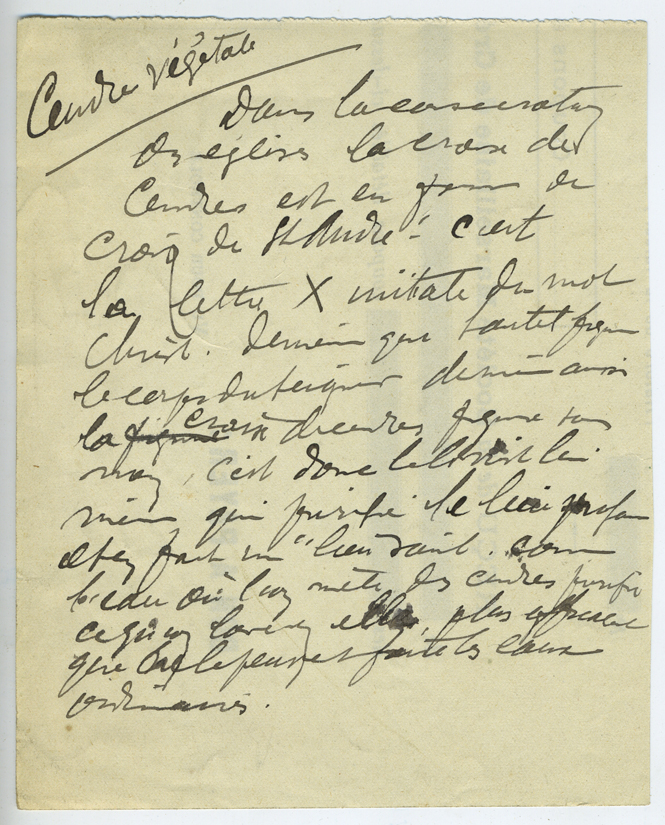 Cendre végétale
Dans la consécration
des églises la croix de
Cendres est en forme de
croix de St André - c'est
la lettre X initiale du mot
Christ. De même que l'autel figure
le corps du Seigneur de même aussi
la figure croix de cendres figure son
nom, c'est donc le Christ lui
même qui purifie le lieu profane
et en fait un "lieu saint. comme
l'eau où l'on mêle des cendres purifie
ce qu'on lave en elle, plus
que ne le peuvent faire les eaux
ordinaires.